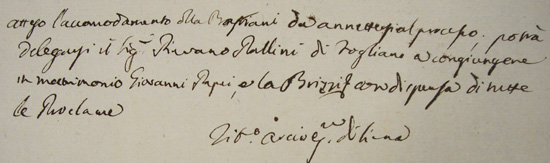 attego l'accomodamento della Bastiani da annettersi al processo, potrà
delegarsi il Sig.r Pievano Rallini di Fogliano a congiungere
in matrimonio Giovanni Papei, e la Brizzi con dispensa di tutte
le Proclame
Tib.o di Siena